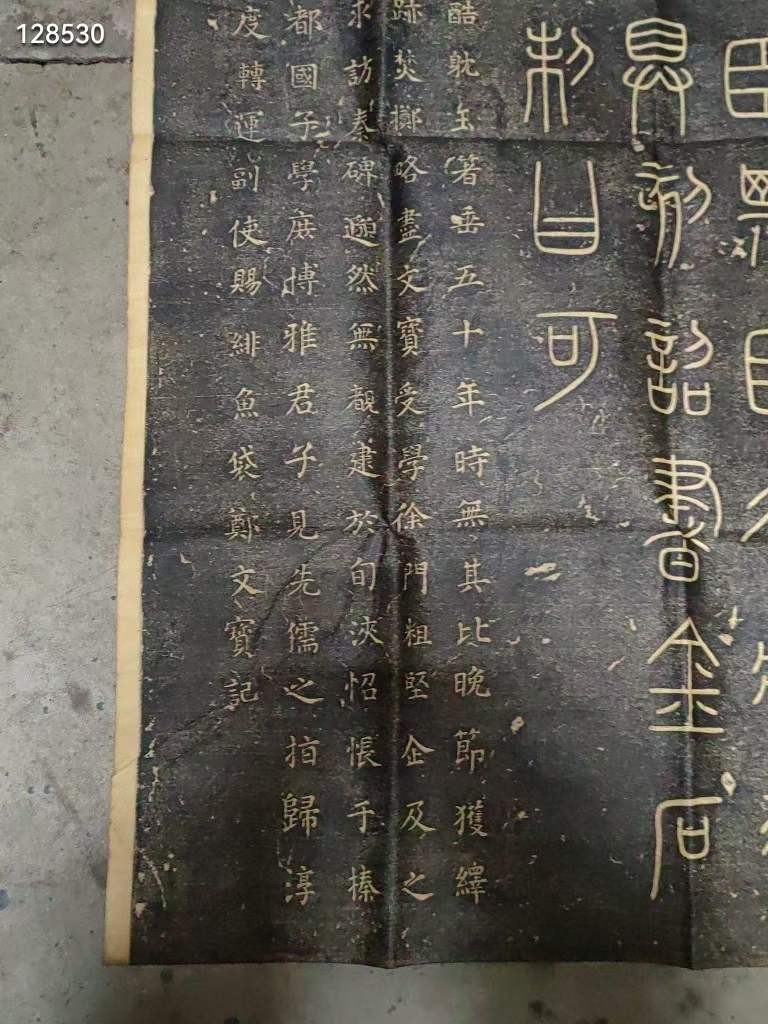 臣
具刻詔書金石
制曰可
酷躭玉箸垂五十年時無其比晚節獲繹
跡焚擲略盡文寶受學徐門粗堅企及之
求訪秦碑邈然無覩逮於旬浹怊悵于榛
都國子學庶博雅君子見先儒之指歸淳
度轉運副使賜緋魚袋鄭文寶記
128530